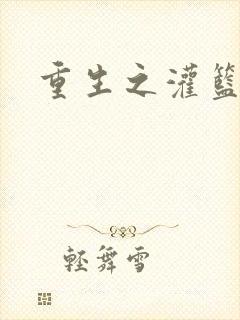 重生之灌籃
輕舞雪